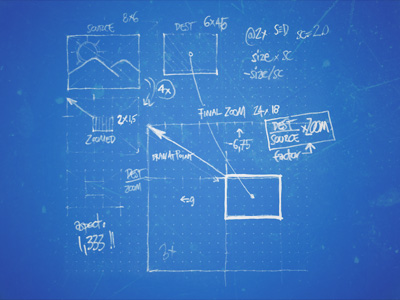 SOURCE
8x6
DEST
6x4,5
@2x
S=D
SC=2.0
size x SC
-size/SC
4x
2x1,5
ZOOMED
FINAL ZOOM 24x18
DEST
SOURCE
x ZOOM
factor
-6,75
DRAW AT POINT
DEST
ZOOM
←9
aspect:
1,333 !!
3x